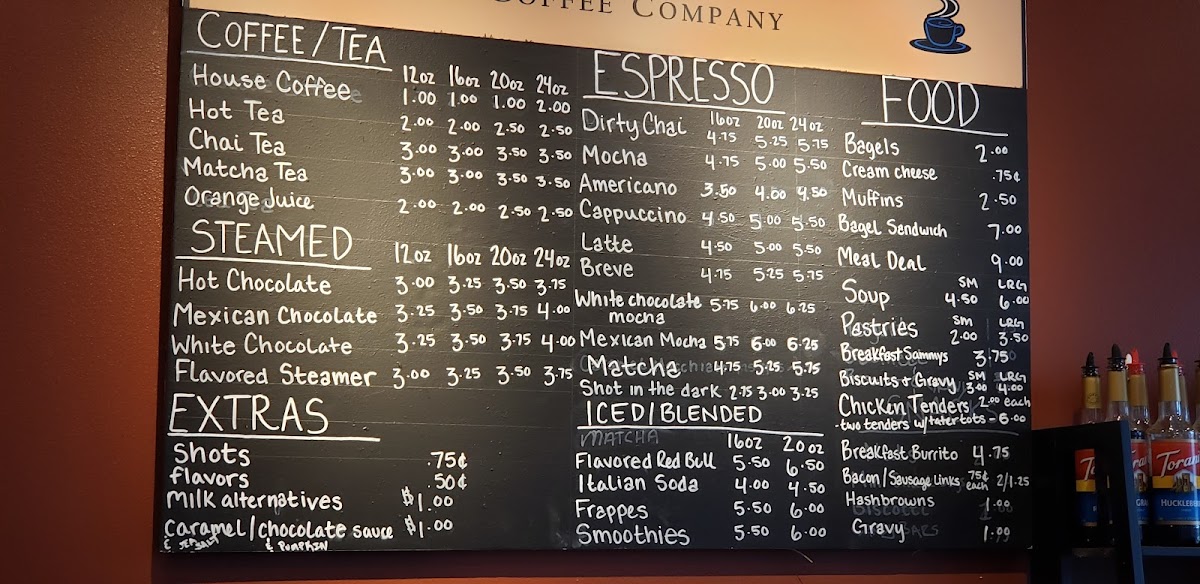 COFFEE COMPANY
COFFEE/TEA
12oz 16oz 20oz 24oz
House Coffee 1.00 1.00 1.00 2.00
Hot Tea 2.00 2.00 2.50 2.50
Chai Tea 3.00 3.00 3.50 3.50
Matcha Tea 3.00 3.00 3.50 3.50
Orange Juice 2.00 2.00 2.50 2.50
STEAMED
12oz 16oz 20oz 24oz
Hot Chocolate 3.00 3.25 3.50 3.75
Mexican Chocolate 3.25 3.50 3.75 4.00
White Chocolate 3.25 3.50 3.75 4.00
Flavored Steamer 3.00 3.25 3.50 3.75
EXTRAS
Shots .75¢
flavors .50¢
Milk alternatives $1.00
Caramel/chocolate sauce $1.00
& SEA SALT & PUMPKIN
ESPRESSO
16oz 20oz 24oz
Dirty Chai 4.75 5.25 5.75
Mocha 4.75 5.00 5.50
Americano 3.50 4.00 4.50
Cappuccino 4.50 5.00 5.50
Latte 4.50 5.00 5.50
Breve 4.75 5.25 5.75
White chocolate mocha 5.75 6.00 6.25
Mexican Mocha 5.75 6.00 6.25
Matcha 4.75 5.25 5.75
Shot in the dark 2.75 3.00 3.25
ICED/BLENDED
MATCHA 16oz 20oz
Flavored Red Bull 5.50 6.50
Italian Soda 4.00 4.50
Frappes 5.50 6.00
Smoothies 5.50 6.00
FOOD
Bagels 2.00
Cream cheese .75¢
Muffins 2.50
Bagel Sandwich 7.00
Meal Deal 9.00
SM LRG
Soup 4.50 6.00
SM LRG
Pastries 2.00 3.50
Breakfast Sammys 3.75
SM LRG
Biscuits + Gravy 3.00 4.00
Chicken Tenders 2.00 each
-two tenders w/tater tots - 6.00
Breakfast Burrito 4.75
Bacon/Sausage Links 75¢ each 2/1.25
Hashbrowns 1.00
Gravy 1.99
Torani
HUCKLEBE